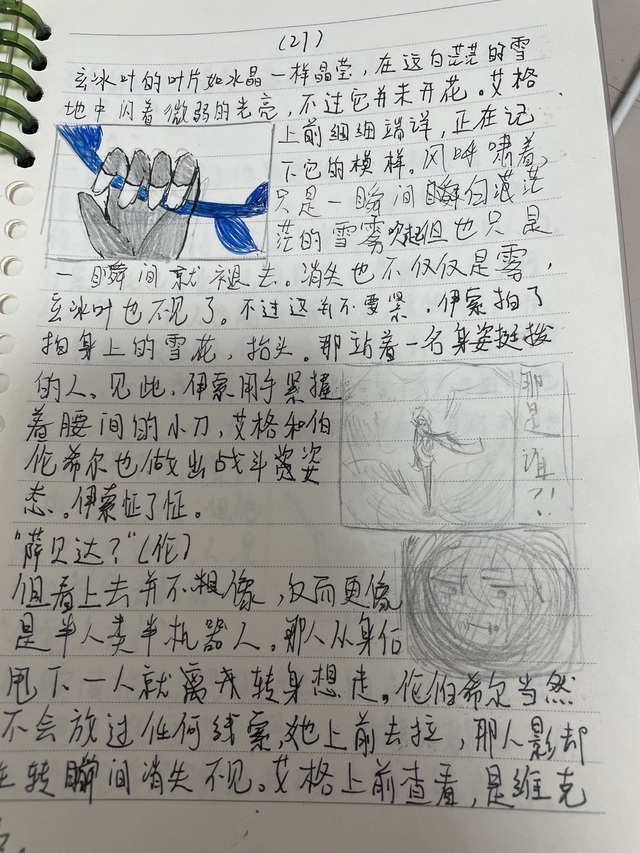 (21)
玄冰叶的叶片如水晶一样晶莹，在这白茫茫的雪
地中闪着微弱的光亮，不过它并未开花。艾格
上前细细端详，正在记
下它的模样。风呼啸着，
只是一瞬间白茫
茫的雪雾吹起但也只是
一瞬间就褪去。消失也不仅仅是雾，
玄冰叶也不见了。不过这并不要紧，伊索拍了
拍身上的雪花，抬头。那站着一名身姿挺拔
的人。见此，伊索用手紧握
着腰间的小刀，艾格和伯
伦希尔也做出战斗姿
态。伊索怔了怔。
那是谁？！
“萨贝达？”（伦）
但看上去并不像，反而更像
是半人类半机器人。那人从身后
甩下一人就离开转身想走。伦伯希尔当然
不会放过任何线索，她上前去拉，那人影却
在转瞬间消失不见。艾格上前查看，是维克